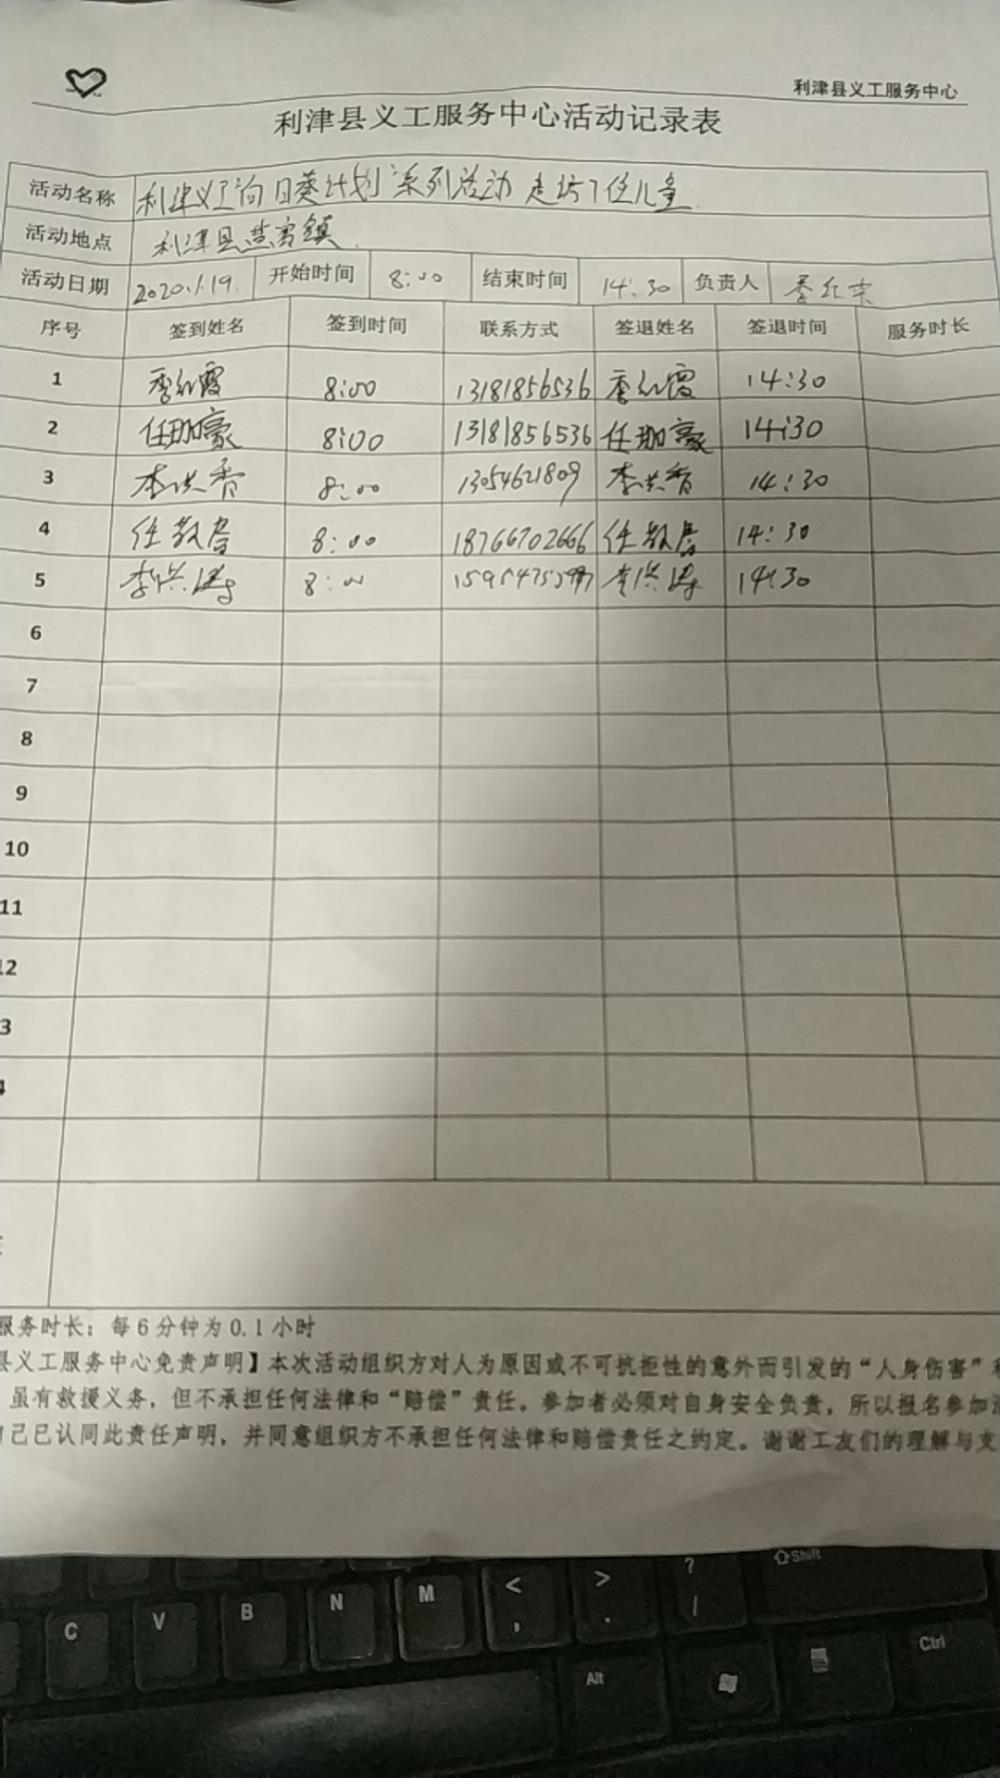 利津县义工服务中心
利津县义工服务中心活动记录表
活动名称 利津义工"向日葵计划"系列活动 走访7位儿童
活动地点 利津县盐窝镇
活动日期 2020.1.19. 开始时间 8:00 结束时间 14:30 负责人
序号 签到姓名 签到时间 联系方式 签退姓名 签退时间 服务时长
1 季红霞 8:00 13181856536 季红霞 14:30
2 任珈豪 8:00 13181856536 任珈豪 14:30
3 李洪香 8:00 13054621809 李洪香 14:30
4 任敬春 8:00 18766702666 任敬春 14:30
5 李洪涛 8:00 李洪涛 14:30
6
7
8
9
10
11
12
3
4
服务时长：每6分钟为0.1小时
县义工服务中心免责声明】本次活动组织方对人为原因或不可抗拒性的意外而引发的“人身伤害”
虽有救援义务，但不承担任何法律和“赔偿”责任。参加者必须对自身安全负责，所以报名参加
己已认同此责任声明，并同意组织方不承担任何法律和赔偿责任之约定。谢谢工友们的理解与支
? Shift
C V B N M < , > . / Ctrl
Alt